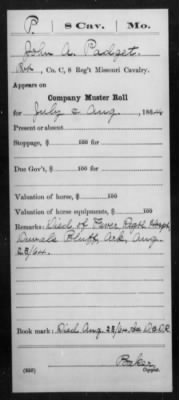 P. 8 Cav. Mo.
John A. Padget.
Co. C, 8 Reg't Missouri Cavalry.
Appears on
Company Muster Roll
for July & Aug, 1864
Present or absent
Stoppage, $ 100 for
Due Gov't, $ 100 for
Valuation of horse, $ 100
Valuation of horse equipments, $ 100
Remarks: Died of Fever Regt. Hospt.
Duvals Bluff, Ark, Aug.
23/64.
Book mark: Died Aug. 23/64
Baker
Copyist.